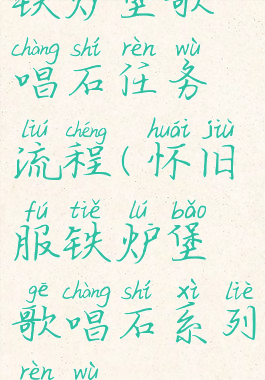 铁炉堡歌
chàng shí rèn wù
唱石任务
liú chéng huái jiù
流程(怀旧
fú tiě lú bǎo
服铁炉堡
gē chàng shí xì liè
歌唱石系列
rèn wù